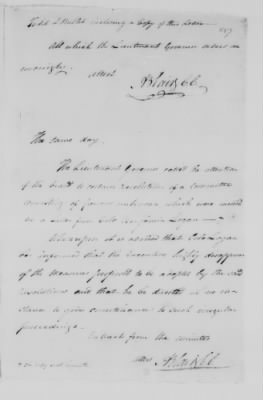 Todd & Mullet inclosing a Copy of this Letter
All which the Lieutenant Governor orders
accordingly.
Attest
A Blair C C
The same day.
The Lieutenant Governor called the attention
of the board to certain resolutions of a Committee
consisting of
in a letter from Colo Benjamin Logan
Whereupon it is advised that Colo Logan
be informed that the Executive highly disapprove
of the measures proposed to be adopted by the said
resolutions and that he be directed in no in-
stance to give countenance to such irregular
proceedings.
Extract from the minutes
Attest A Blair C C